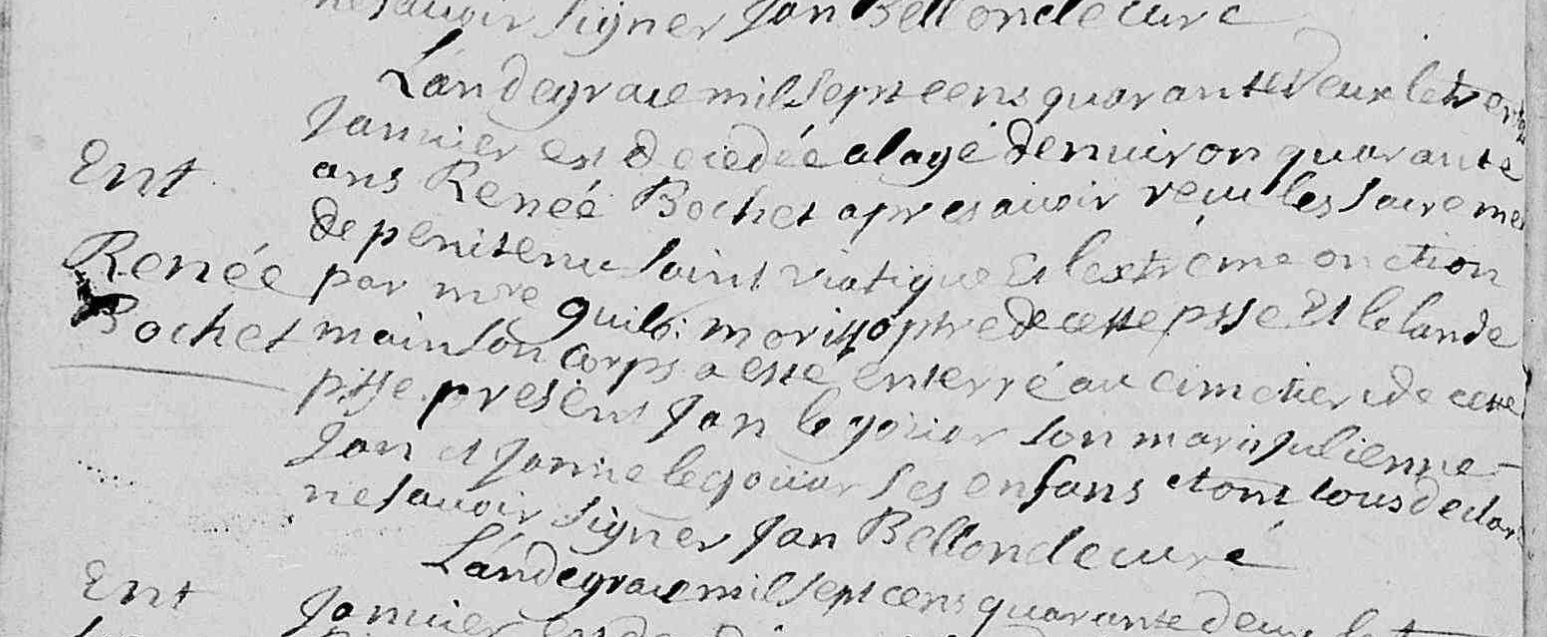 nesavoir signer Jan Bellondecuré
L'an de grace mil sept cens quarante deux le trois
Janvier est decedée alagé denviron quarante
Ent
ans Renée Bochet apres avoir reçu les sacremens
de penitence saint viatique Et lextrême onction
Renée
par mre Guil: morisso ptre de cette psse Et le lande
Bochet
main son corps a esté enterré au cimetiere de cette
psse present Jan le gouar son mari Julienne
Jan et Janne le gouar ses enfans et ont tous declaré
ne savoir signer Jan Bellondecuré
L'an de grace mil sept cens quarante deux le
Ent
Janvier